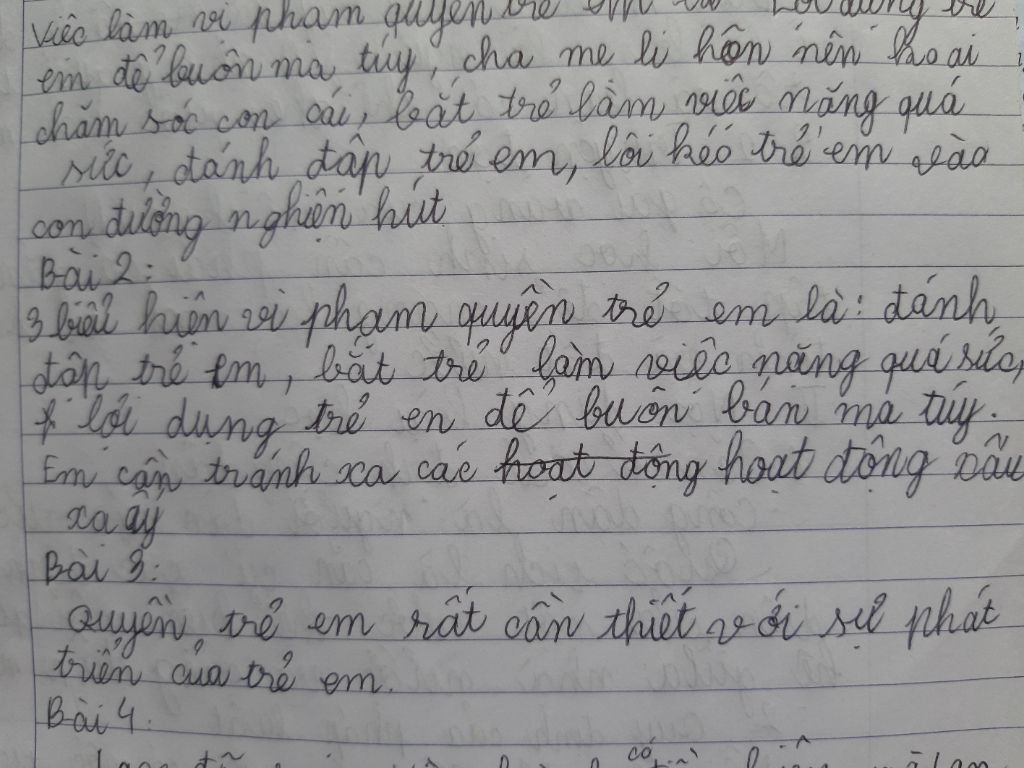 Việc làm vi phạm quyền trẻ em là Lợi dụng trẻ
em để buôn ma túy, cha mẹ li hôn nên ko ai
chăm sóc con cái, bắt trẻ làm việc nặng quá
sức, đánh đập trẻ em, lôi kéo trẻ em vào
con đường nghiện hút
Bài 2:
3 biểu hiện vi phạm quyền trẻ em là: đánh
đập trẻ em, bắt trẻ làm việc nặng quá sức,
lợi dụng trẻ en để buôn bán ma túy.
Em cần tránh xa các hoạt động hoạt động xấu
xa ấy
Bài 3:
Quyền trẻ em rất cần thiết với sự phát
triển của trẻ em.
Bài 4: